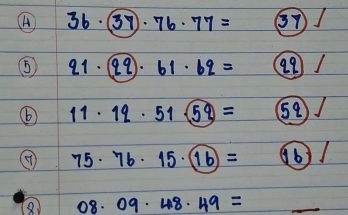 4 36 · 37 · 76 · 77 = 37 ✓
5 21 · 22 · 61 · 62 = 22 ✓
6 11 · 12 · 51 · 52 = 52 ✓
7 75 · 76 · 15 · 16 = 16 ✓
8 08 · 09 · 48 · 49 =